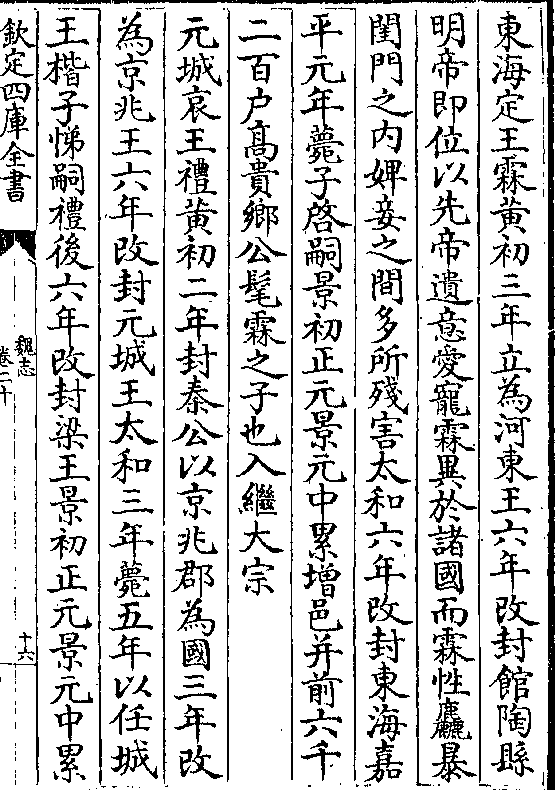 東海定王霖黄初三年立為河東王六年改封館陶縣
明帝即位以先帝遺意愛寵霖異於諸國而霖性麤暴
閨門之内婢妾之間多所殘害太和六年改封東海嘉
平元年薨子啓嗣景初正元景元中累增邑并前六千
二百户高貴鄉公髦霖之子也入繼大宗
元城哀王禮黄初二年封秦公以京兆郡為國三年改
為京兆王六年改封元城王太和三年薨五年以任城
王楷子悌嗣禮後六年改封梁王景初正元景元中累
欽定四庫全書
魏志
卷二十
十六